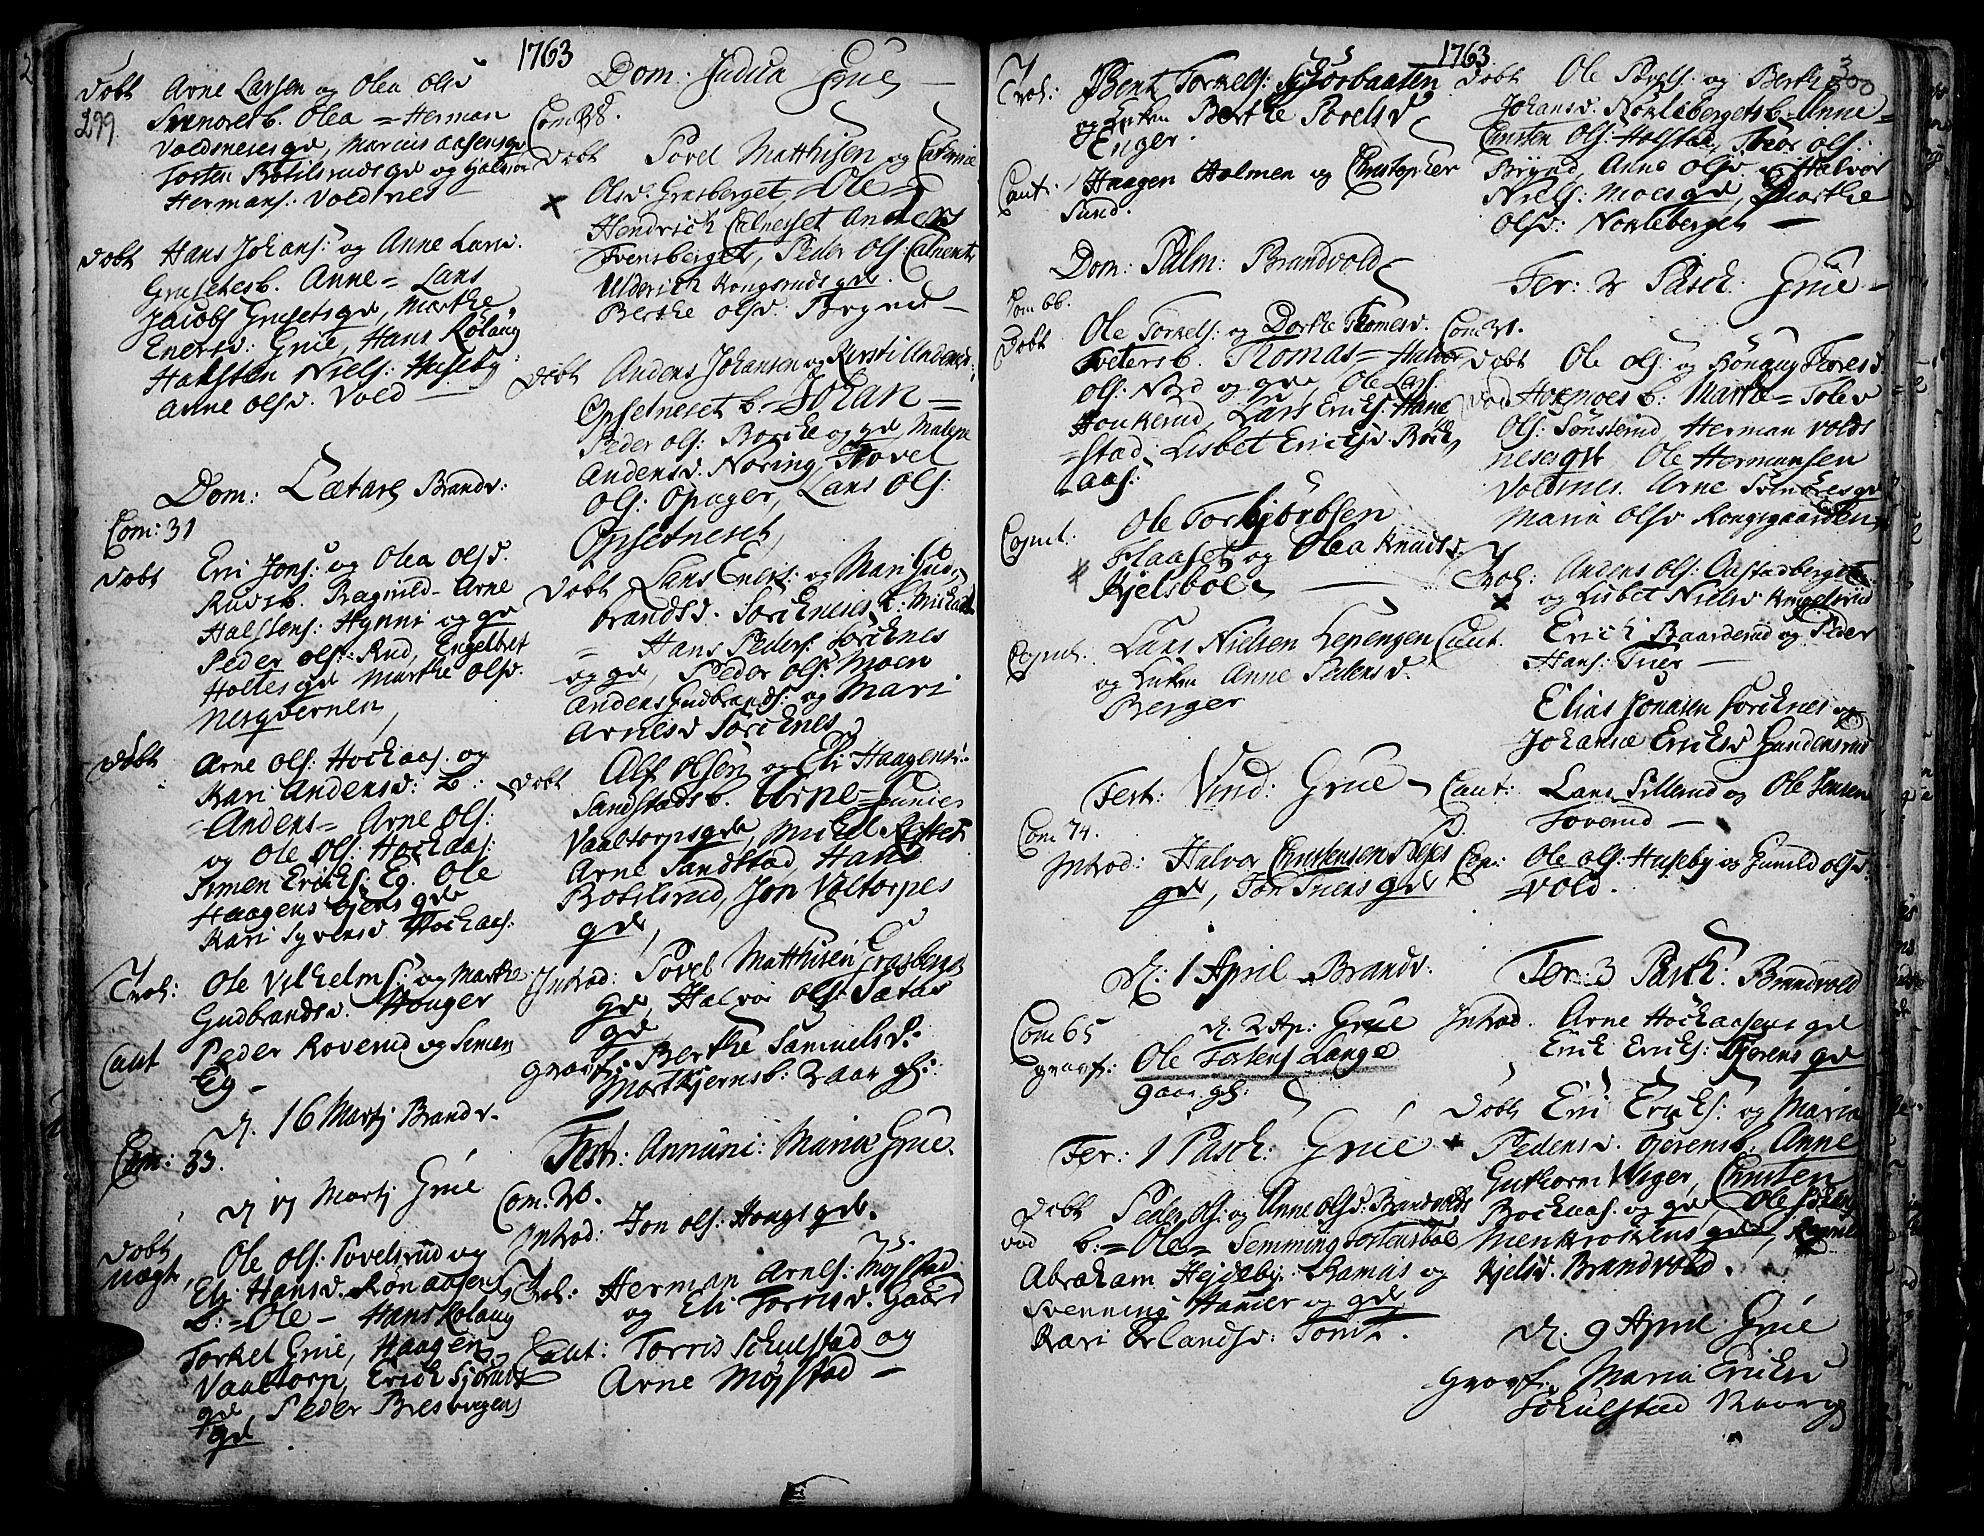 1763
299.
Døbt Arne Larsen og Olea Olsd
Svenoret b. Olea = Herman
Voldsneses gd, Marcus Aasens gd
Torsten Botilsruds gd og Halvor
Hermans: Voldnes
Døbt Hans Johans: og Anne Larsd.
Grusetes b. Anne = Lars
Jacobs Grusets gd, Marthe
Enersd: Grue, Hans Kølaug
Halsten Niels: Huseby
Anne Olsd. Vold
Dom: Lætare Brandv:
Com: 31
Døbt Eri Jons: og Olea Olsd.
Ruds b. Ragnild = Arne
Halstens: Hynni og gd
Peder Ols: Rud, Engelbret
Holtes gd Marthe Olsd.
Nesqvernen,
Døbt Arne Ols: Hockaas og
Kari Andersd: b:
= Anders = Arne Ols:
og Ole Ols: Hockaas:
Simen Ericks: Eg. Ole
Haagens gd
Kari Syversd Hockaas:
Trol: Ole Vilhelms: og Marthe
Gudbrandsd. Houger
Caut Peder Roverud og Simen
Eg -
D. 16 Martj Brandv.
Com: 33.
D 17 Martj Grue
Døbt Ole Ols: Povelsrud og
uægt, Eli Hansd. Rønaasens
b: = Ole = Hans Kolaug
Torkel Grue, Haagen
Vaaltorp, Erick
gd, Peder
gd
Dom: Judica Grue
Com 38.
Døbt Povel Matthisen og Cathrine
Olsd. Grasberget = Ole =
Hendrich Calneset Anders
Svensberget, Peder Ols: Calneset
Ulderich Kongsruds gd.
Berthe Olsd. Brynd
Døbt Anders Johansen og Kersti Andersd:
Opsetneset b. Johan =
Peder Ols: Borche og gd Malene
Andersd. Noring, Povel
Ols: Opager, Lars Ols:
Opsetneset,
Døbt Lars Eners: og Mari Gud-
brandsd. Sorcknes b: Michel
= Hans Peders: Sorcknes
og gd, Peder Ols: Moen
Anders Gudbrands: og Mari
Arnesd Sorcknes,
Døbt Alf Olsen og Eli Haagens:
Sandstads b. Arne = Gunder
Vaaltorps gd, Michel
Arne Sandstad, Hans
Botilsrud, Jon Valtorpes
gd,
Introd: Povel Matthisen Grasbergs
gd, Halvor Ols: Sætas
gd
gravf: Berthe Samuelsd:
Mortkjerns b: 2 aar gl:
Fest: Annunc: Mariæ Grue
Com. 20.
Introd: Jon Ols: Hougs gd.
Trol: Herman Arnes: Møystad
og Eli Torrisd. Gaard
Caut: Torris Schulstad og
Arne Møystad
1763
300
Trol: Bent Torkels: Schiorbaaten
og Enken Berthe Povelsd
Enger.
Caut: Haagen Holmen og Christopher
Sund.
Dom: Palm: Brandvold
Com 66.
Døbt Ole Torkels: og Dorthe Thomesd.
b. Thomas = Halvor
Ols: Nord og gd, Ole Lars:
Houkerud, Lars Ericks: Hane
=stad: Lisbet Ericksd Rock
aas:
Copul. Ole Torbjörbsen
Flaaset og Olea Knudsd.
Kjelsböl
Copul. Lars Nielsen Lepengen
og Enken Anne Pedersd.
Berger
Fest: Vird: Grue
Com 74.
Introd: Halvor Christensen
gd, Jon Triers gd
D. 1 April Brandv.
Com 65
D. 2 Ap: Grue
gravf: Ole Torkens Lange
9 aar gl:
Fer: 1 Pasch: Grue
Døbt Peder Ols: og Anne Olsd: Brandvolds
vod b: = Ole = Semming Torkensböl
Abraham Hejdebÿ: Ramas og
Svenning Hanier og gd
Kari Erlandsd: Tomt.
Døbt Ole Povels: og Berthe
Johansd. Nøkleberget b. Anne =
Christen Ols: Holstad, Thor Ols:
Brynd, Anne Olsd. og Halvor
Niels: Moes gd, Marthe
Olsd: Nokleberget
Fer: 2 Pasch: Grue
Com 31.
Døbt Ole Ols: og Rönnaug Thoresd
vod Hoymoes b: Marthe = Tolev
Ols: Sönsterud, Herman Volds
neses gd, Ole Hermansen
Voldsnes. Arne Svenöres gd
Maria Olsd Kongsgaarden
Trol: Anders Ols: Aastadberget
og Lisbet Nielsd Kregelsrud
Caut. Erick Baarderud og Peder
Hans: Trier
Elias Jonasen Sorcknes og
Johanne Ericksd Gundersrud
Caut: Lars Lillerud og Ole Jensen
Foverud
Cop: Ole Ols: Huseby og Gunild Olsd.
Vold.
Fer: 3 Pasch: Brandvold
Introd. Arne Hockaasens gd
Erik Ericks: Tjerens gd
Døbt Eri Ericks: og Maria
Pedersd. Tjerens b. Anne
Guthorm Uleger, Christen
Rockaas: og gd, Ole
Menkrockens gd, Ragnild
Kjelsd. Brandvold.
D. 9 April Grue
gravf: Maria Ericksd
Schulstad